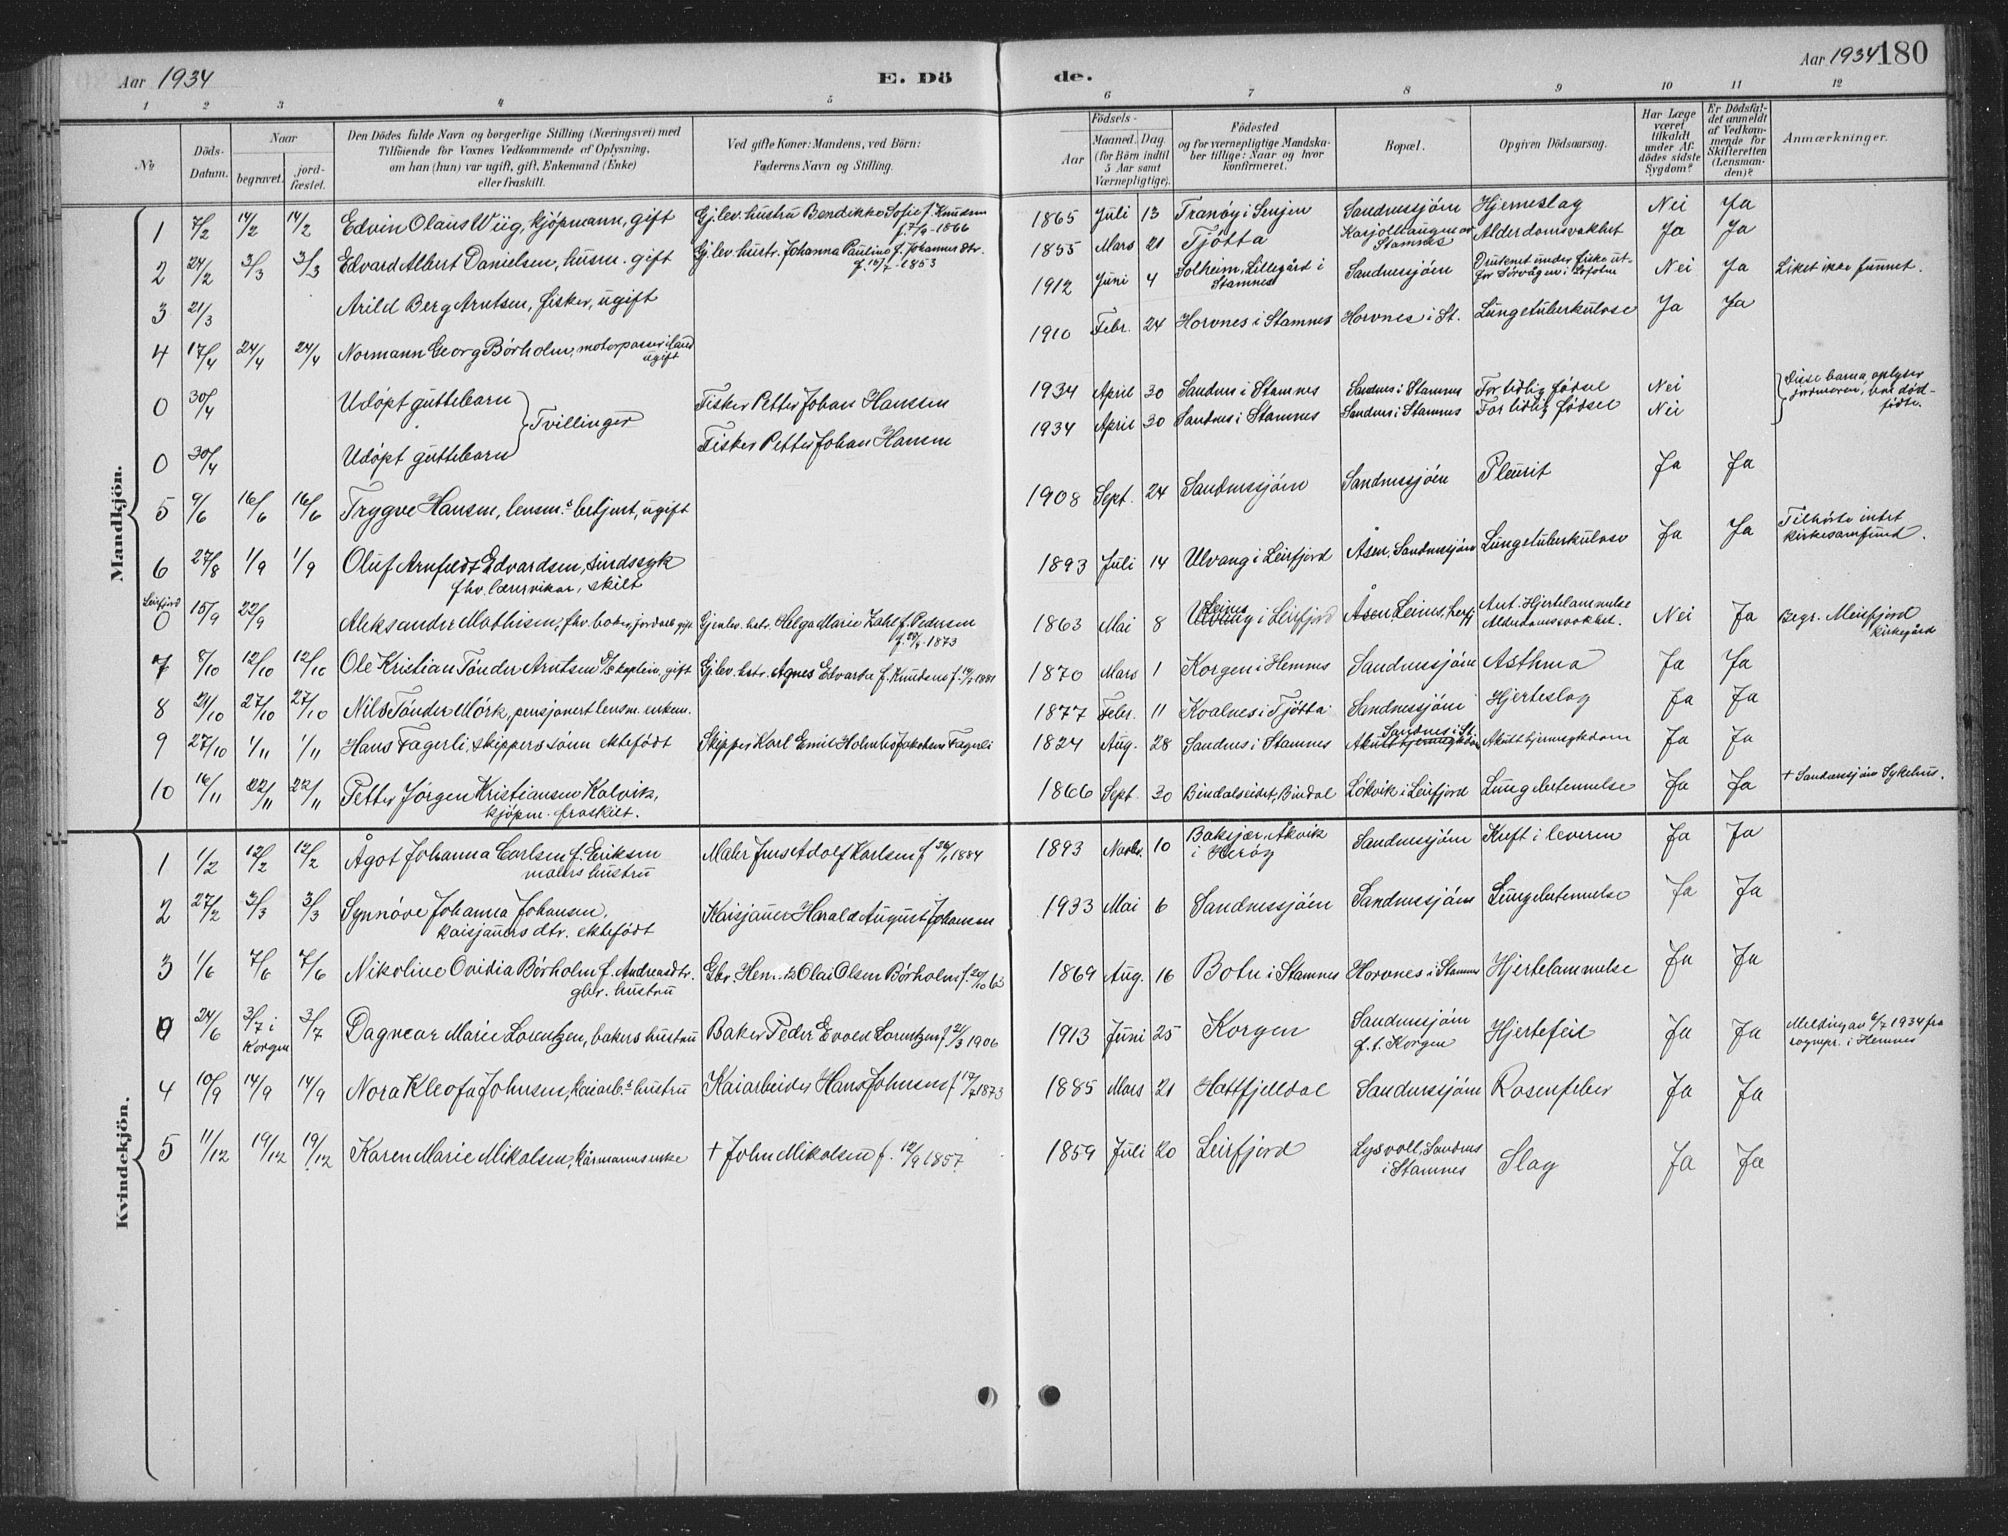 Aar 1934
E. Dö
de.
Aar 1934
180
1 2 3 4 5 6 7 8 9 10 11 12
No
Döds-
Datum.
Naar
begravet.
jord-
fæstet.
Den Dödes fulde Navn og borgerlige Stilling (Næringsvei) med
Tilföiende for Voxnes Vedkommende af Oplysning,
om han (hun) var ugift, gift, Enkemand (Enke)
eller fraskilt.
Ved gifte Koner: Mandens, ved Börn:
Faderens Navn og Stilling.
Födsels-
Aar
Maaned. Dag.
(for Börn indtil
5 Aar samt
Værnepligtige).
Födested
og for værnepligtige Mandska-
ber tillige: Naar og hvor
konfirmeret.
Bopæl.
Opgiven Dödsaarsag.
Har Læge
været
tilkaldt
under Af-
dödes sidste
Sygdom?
Er Dödsfal-
det anmeldt
af Vedkom-
mende for
Skifteretten
(Lensman-
den)?
Anmærkninger.
Mandkjön.
1 7/2 14/2 14/2 Edvin Olaus Wiig, kjöpmann, gift Gj.lev. hustru Bendikke Sofie f. Knudsen f. 7/9-1866 1865 Juli 13 Tranöy i Senjen Sandnessjöen Hjerneslag Nei Ja
2 24/2 3/3 3/3 Edvard Albert Danielsen, husm. gift Gj.lev. hustr. Johanna Pauline f. Johannesdtr. f. 15/7-1853 1855 Mars 21 Tjötta Karjolhaugen av Stamnes Alderdomsvakhet Ja Ja
3 21/3 Arild Berg Arntsen, fisker, ugift 1912 Juni 4 Solheim, Lillegård i Stamnes Sandnessjöen Druknet under fiske ut- for Sörvågen i Lofoten Nei Ja Liket ikke funnet.
4 17/4 24/4 24/4 Normann Georg Börholm, motorpasser i land ugift 1910 Febr. 24 Horvnes i Stamnes Horvnes i St. Lungetuberkulose Ja Ja
0 30/4 Udöpt guttebarn Tvillinger Fisker Petter Johan Hanssen 1934 April 30 Sandnes i Stamnes Sandnes i Stamnes For tidlig födsel Nei Disse barna, oplyser jordmoren, var död- födte.
0 30/4 Udöpt guttebarn Fisker Petter Johan Hansen 1934 April 30 Sandnes i Stamnes Sandnes i Stamnes For tidlig födsel Nei
5 9/6 16/6 16/6 Trygve Hansen, lensm.s betjent, ugift 1908 Sept. 24 Sandnessjöen Sandnessjöen Pleurit Ja Ja
6 27/8 1/9 1/9 Oluf Arnfeldt Edvardsen, sindssyk fhv. lærervikar, skilt 1893 Juli 14 Ulvang i Leirfjord Åsen, Sandnessjöen Lungetuberkulose Ja Ja Tilhörte intet kirkesamfund.
Leirfjord
0 15/9 22/9 Aleksander Mathisen, fhv. jordarb. gift Helga Marie Zahl f. Pedersen 1873 1863 Mai 8 Leines i Leirfjord Åsen Leines, Ant. Hjertelammelse Alderdomssvakhet. Nei Ja Begr. Meisfjord kirkegård
7 8/10 12/10 12/10 Ole Kristian Tönder Arntsen D/S kaptein, gift Gj.lev. hstr. Agnes Edvarda f. Knudsen f. 1881 1870 Mars 1 Korgen i Hemnes Sandnessjöen Asthma Ja Ja
8 21/10 27/10 27/10 Nils Tönder Mörk, pensjonert lensm. enkem. 1877 Febr. 11 Kvalnes i Tjötta Sandnessjöen Hjerteslag Ja Ja
9 27/10 1/11 1/11 Hans Fagerli, skippers sönn ektefödt Skipper Karl Emil Holmbo Jakobsen Fagerli 1824 Aug. 28 Sandnes i Stamnes Sandnes i St. Akutt hjernesykdom Ja Ja
10 16/11 22/11 22/11 Petter Jörgen Kristiansen Kalvik, kjöpm. fraskilt. 1866 Sept. 30 Bindalseidet, Bindal Lökvik i Leirfjord Lungebetennelse Ja Ja + Sandnessjöen Sykehus.
Kvindekjön.
1 1/2 12/2 12/2 Ågot Johanna Carlsen f. Eriksen malers hustru Maler Jens Adolf Karlsen f. 26/1 1884 1893 Novbr. 10 Baksjær, Åkvik i Heröy Sandnessjöen Kreft i leveren Ja Ja
2 27/2 3/3 3/3 Synnöve Johanna Johansen, kaisjauers dtr. ektefödt Kaisjauer Harald August Johansen 1933 Mai 6 Sandnessjöen Sandnessjöen Lungebetennelse Ja Ja
3 1/6 7/6 7/6 Nikoline Ovidia Börholm f. Andreasdtr. gbr. hustru Gbr. Olai Olsen Börholm f. 20/10 63 1869 Aug. 16 Botn i Stamnes Horvnes i Stamnes Hjertelammelse Ja Ja
0 24/6 3/7 i Korgen 3/7 Dagmar Marie Lorentzen, bakers hustru Baker Peder Evald Lorentzen f. 21/3 1906 1913 Juni 25 Korgen Sandnessjöen f.t. Korgen Hjertefeil Ja Ja Melding av 6/7 1934 fra sognepr. i Hemnes
4 10/9 14/9 14/9 Nora Kleofa Johnsen, kaiarb.s hustru Kaiarbeider Hans Johnsen f. 17/7 1873 1885 Mars 21 Hattfjelldal Sandnessjöen Rosenfeber Ja Ja
5 11/12 19/12 19/12 Karen Marie Mikalsen, kårmannsenke + John Mikalsen f. 12/9 1857 1859 Juli 20 Leirfjord Lysvoll, Sandnes i Stamnes Slag Ja Ja